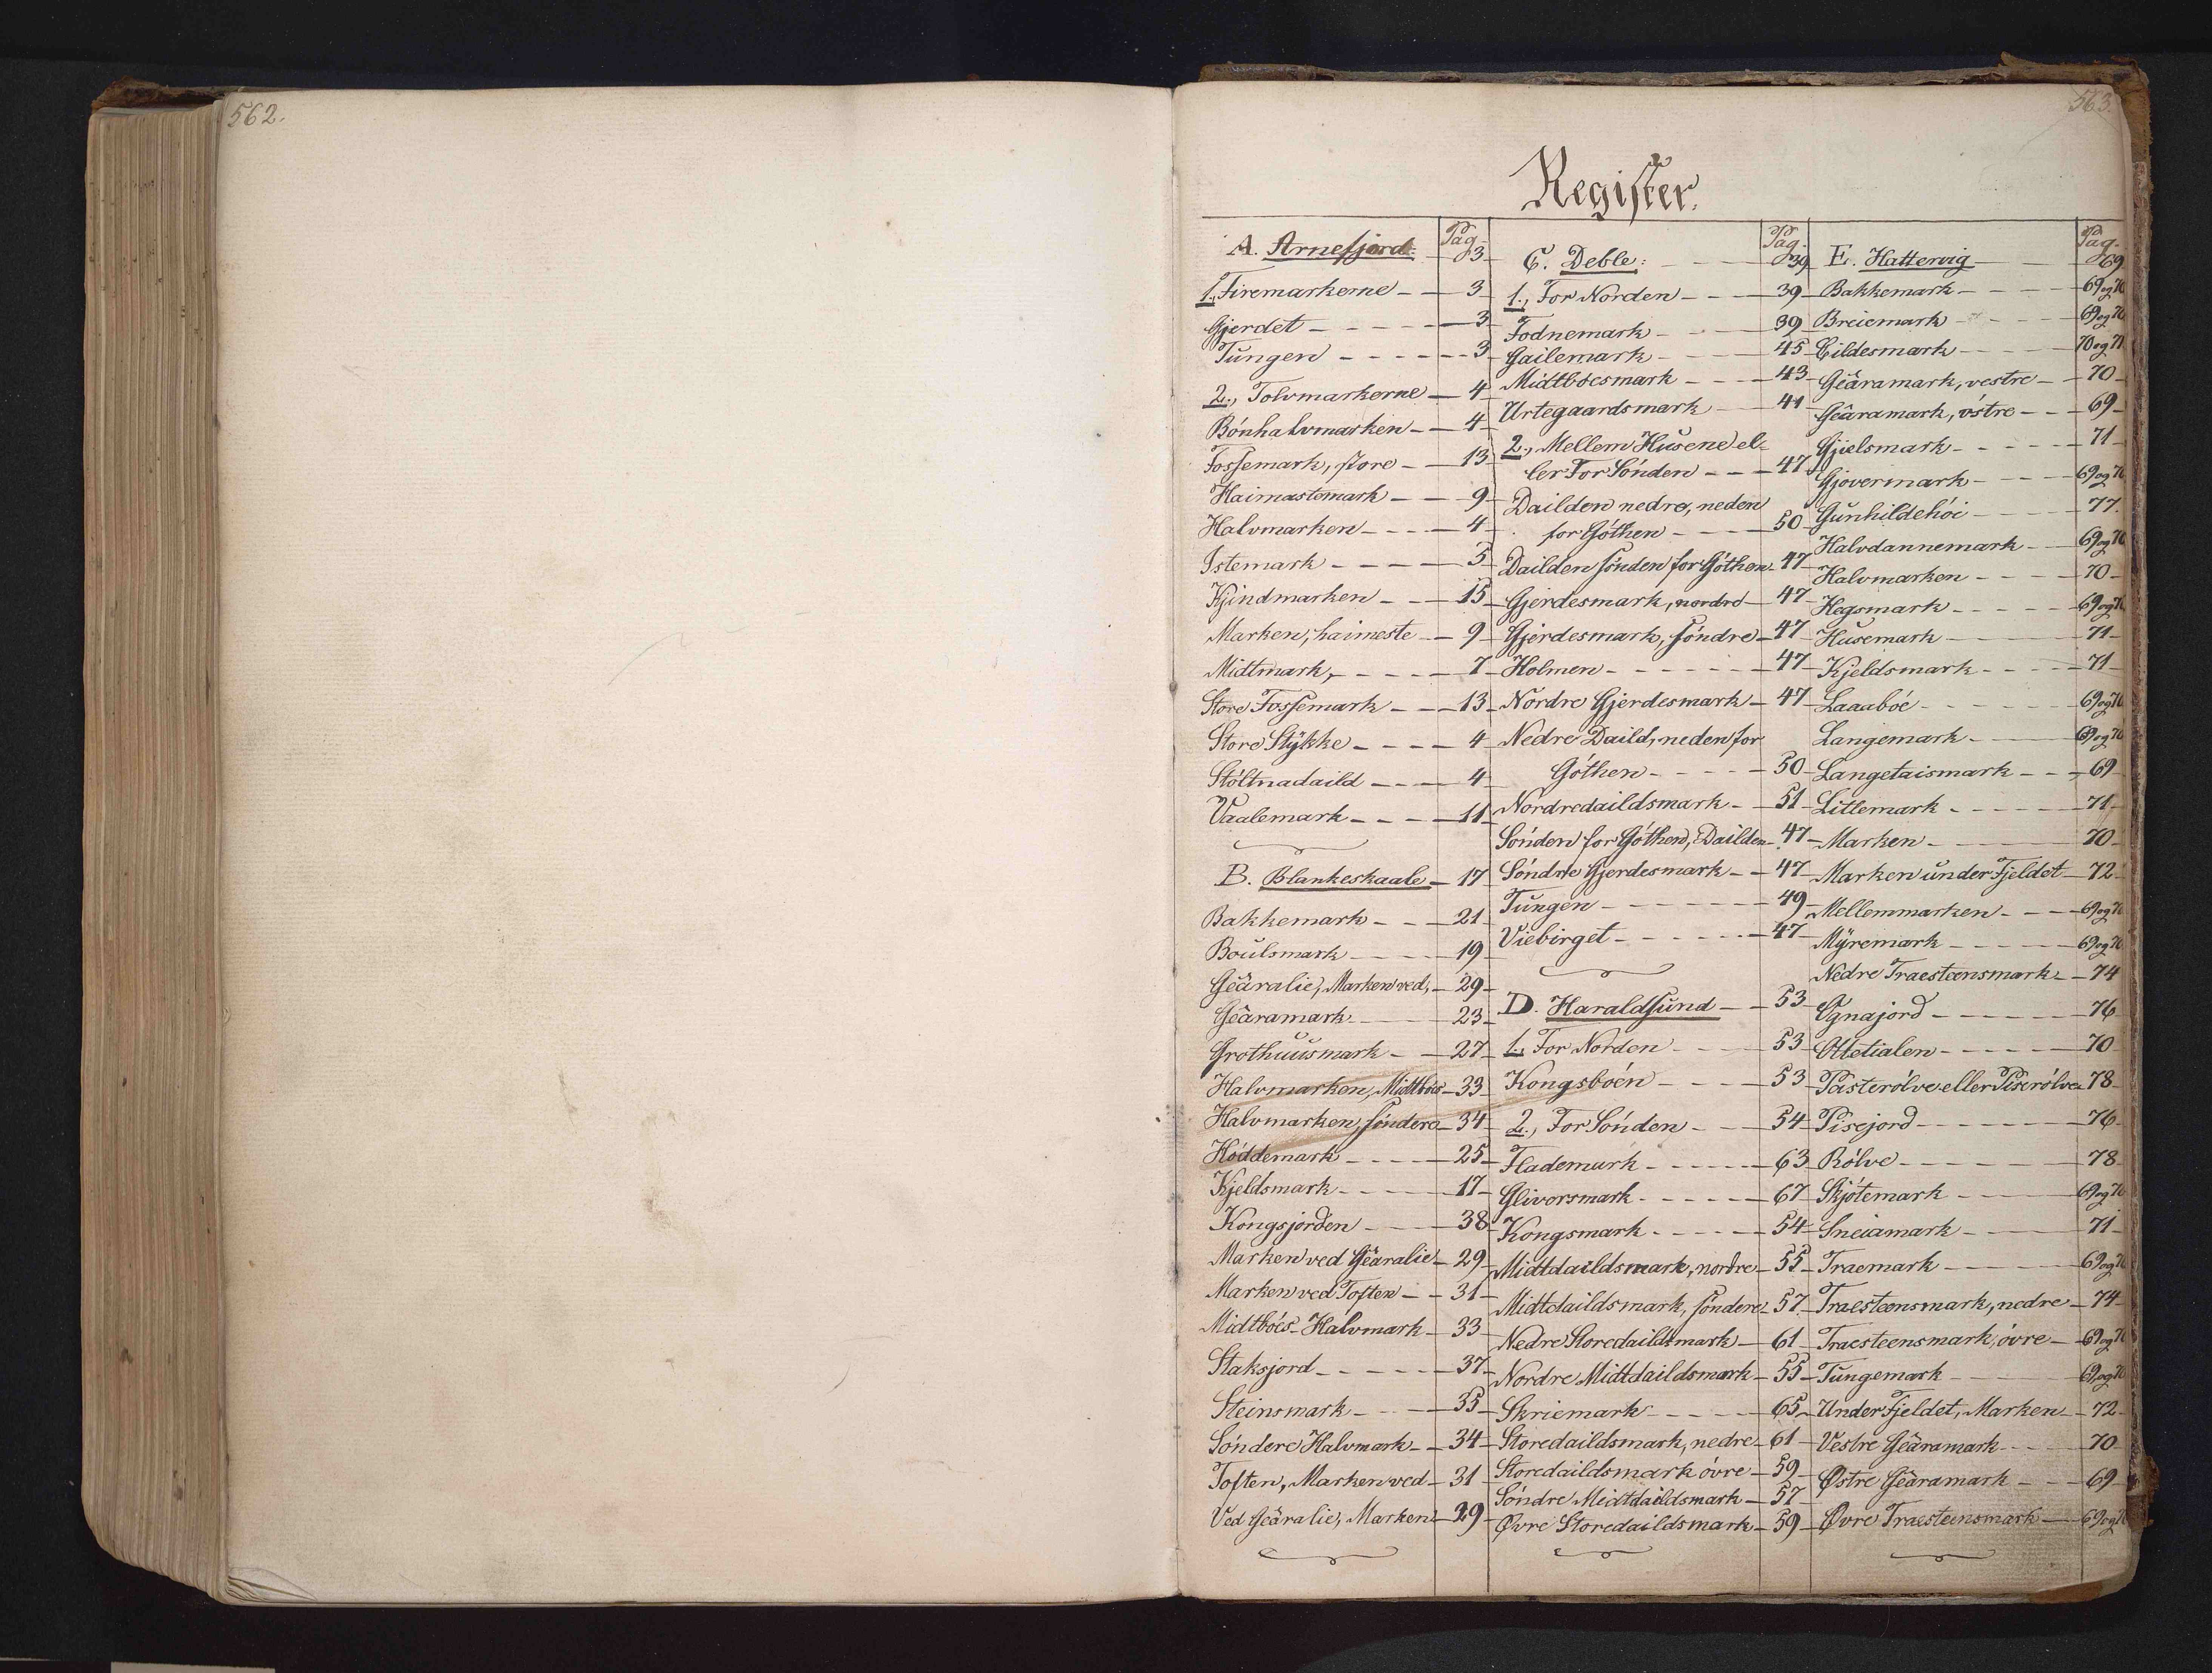 562.
563
Register.
Pag.
A. Arnefjord: 3
1., Firemarkerne — 3
Gjerdet — 3
Tungen — 3
2., Tolvmarkerne — 4
Bónhalvmarken — 4
Fossemark, store — 13
Haimastemark — 9
Halvmarken — 4
Istemark — 5
Kjindmarken — 15
Marken, haimeste — 9
Midtmark, — 7
Store Fossemark — 13
Store Stykke — 4
Stóltnadaild — 4
Vaalemark — 11
B. Blankeskaale — 17
Bakkemark — 21
Boulsmark — 19
Geäralie, Marken ved, — 29
Geäramark — 23
Grothuusmark — 27
Halvmarken, Midtbóes — 33
Halvmarken, sóndere — 34
Hóddemark — 25
Kjeldsmark — 17
Kongsjorden — 38
Marken ved Geäralie — 29
Marken ved Toften — 31
Midtbóes-Halvmark — 33
Staksjord — 37
Steinsmark — 35
Sóndere Halvmark — 34
Toften, Marken ved — 31
Ved Geäralie, Marken — 29
Pag.
C. Deble: — 39
1., For Norden — 39
Fodnemark — 39
Gailemark — 45
Midtbóesmark — 43
Urtegaardsmark — 41
2., Mellem Husene el-
ler For Sónden — 47
Dailden nedre, neden
for Góthen — 50
Dailden sónden for Góthen — 47
Gjerdesmark, nordre — 47
Gjerdesmark, sóndre — 47
Holmen — 47
Nordre Gjerdesmark — 47
Nedre Daild, neden for
Góthen — 50
Nordredaildsmark — 51
Sónden for Góthen, Dailden — 47
Sóndre Gjerdesmark — 47
Tungen — 49
Viebirget — 47
D. Haraldsund — 53
1., For Norden — 53
Kongsboén — 53
2., For Sónden — 54
Flademark — 63
Glivorsmark — 67
Kongsmark — 54
Midtdaildsmark, nordre — 55
Midtdaildsmark, sóndere — 57
Nedre Storedaildsmark — 61
Nordre Midtdaildsmark — 55
Skriemark — 65
Storedaildsmark, nedre — 61
Storedaildsmark óvre — 59
Sóndre Midtdaildsmark — 57
Øvre Storedaildsmark — 59
Pag.
E. Hattervig — 69
Bakkemark — 69 og 70
Breiemark — 69 og 70
Eildesmark — 70 og 71
Geäramark, vestre — 70
Geäramark, óstre — 69
Gjielsmark — 71
Gjovermark — 69 og 70
Gunhildehói — 77.
Halvdannemark — 69 og 70
Halvmarken — 70
Hegsmark — 69 og 70
Husemark — 71
Kjeldsmark — 71
Laaabóe — 69 og 70
Langemark — 69 og 70
Langetaismark — 69
Litlemark — 71
Marken — 70
Marken under Fjeldet — 72
Mellemmarken — 69 og 70
Myremark — 69 og 70
Nedre Traesteensmark — 74
Ognajord — 76
Olletialen — 70
Pasterólve eller Piserólve 78
Pisejord — 76
Rólve — 78
Skjótemark — 69 og 70
Sneiamark — 71
Traemark — 69 og 70
Traesteensmark, nedre — 74
Traesteensmark, óvre — 69 og 70
Tungemark — 69 og 70
Under Fjeldet, Marken — 72
Vestre Geäramark — 70
Østre Geäramark — 69
Øvre Traesteensmark — 69 og 70